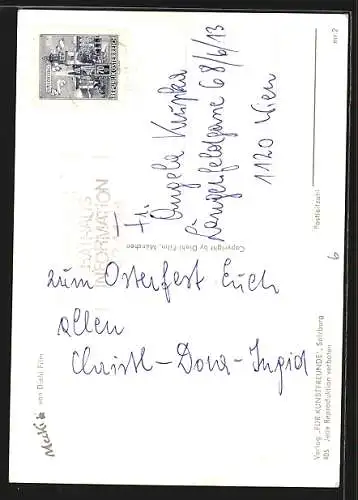 zum Osterfest Euch
allen
Christl-Dora-Ingrid
Frl.
Angela Krupka
Längenfeldgasse 68/6/13
1120 Wien
Postleitzahl
mr 2
6
REPUBLIK ÖSTERREICH
INFORMATION
Copyright by Diehl Film, München
Mecki von Diehl Film
Verlag „FÜR KUNSTFREUNDE", Salzburg
405 Jede Reproduktion verboten